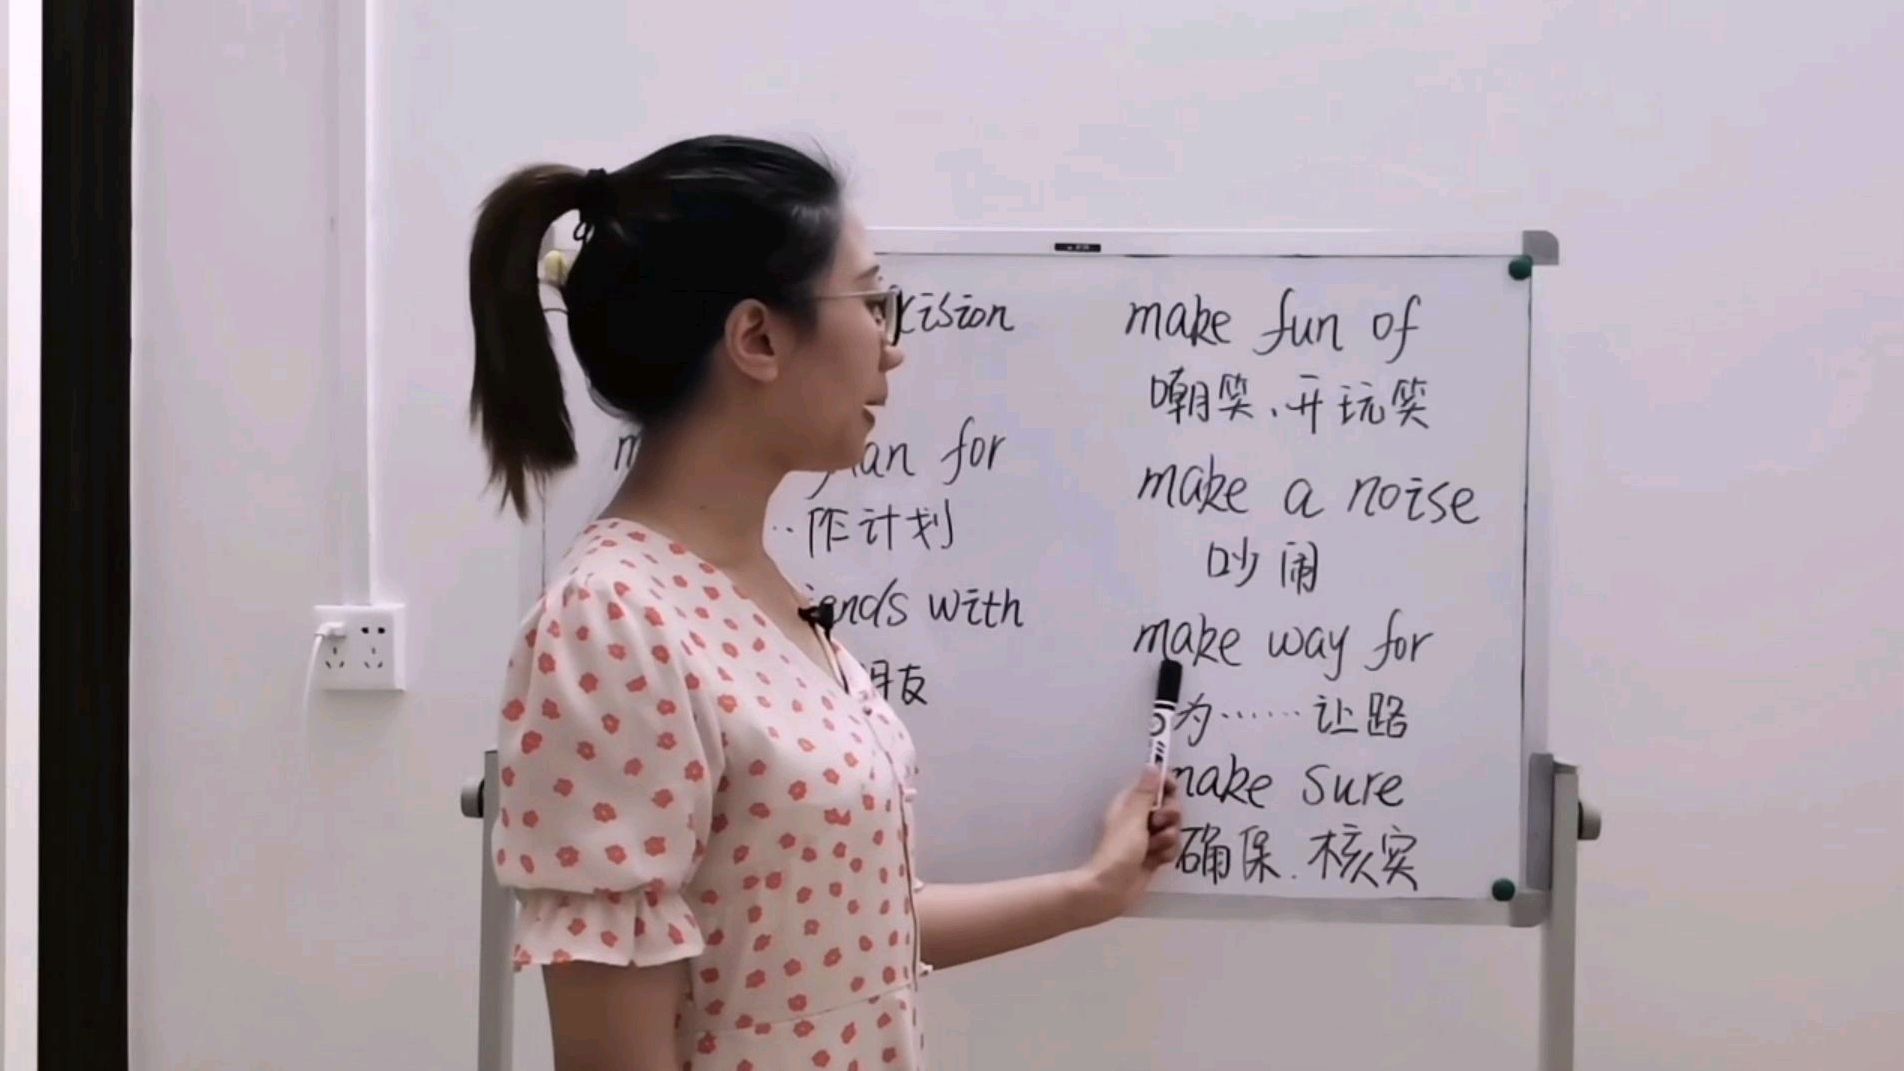 for
作计划
with
友
make fun of
嘲笑、开玩笑
make a noise
吵闹
make way for
为……让路
make sure
确保.核实